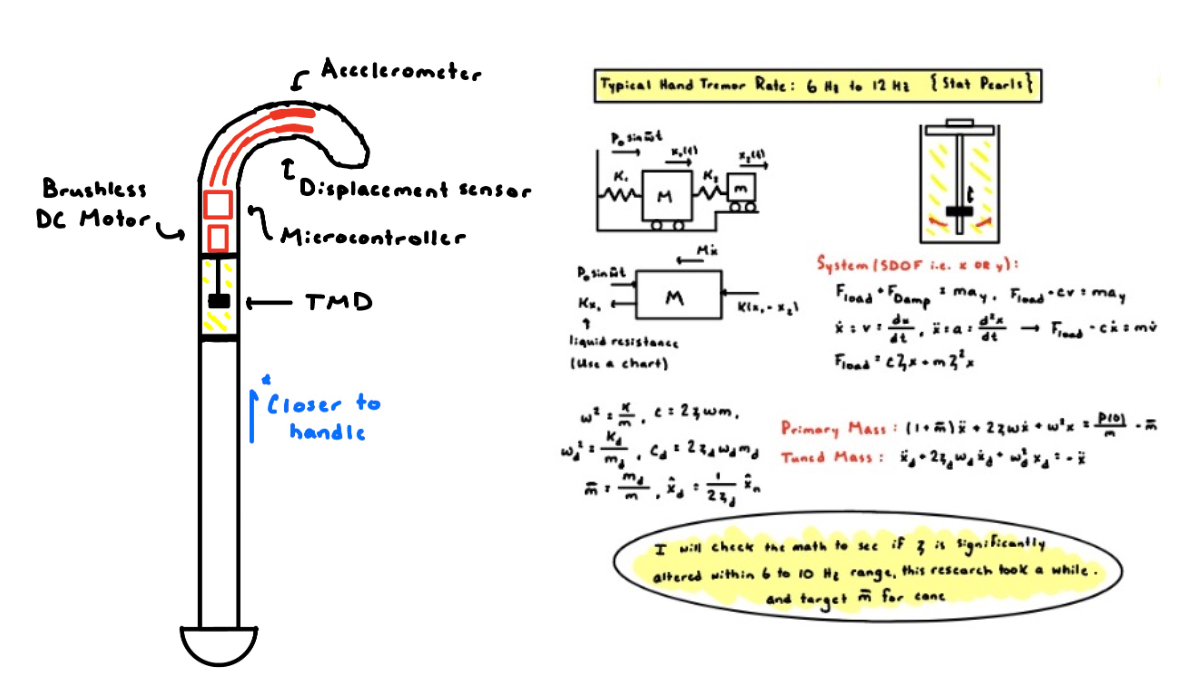 Accelerometer
Displacement sensor
Brushless
DC Motor
Microcontroller
TMD
* Closer to
handle
Typical Hand Tremor Rate: 6 Hz to 12 Hz {Stat Pearls}
P₀ sin ω̄t
x₁(t)
x₂(t)
K₁
M
K₂
m
t
Mẍ
P₀ sin ω̄t
Kx₁
M
K(x₁ - x₂)
liquid resistance
(Use a chart)
System (SDOF i.e. x OR y):
F_load + F_Damp = ma_y, F_load - cv = ma_y
ẋ = v = dx/dt, ẍ = a = d²x/dt → F_load - cẋ = mv̇
F_load = cξx + mξ²x
ω² = K/m, c = 2ξωm,
ω_d² = K_d/m_d, C_d = 2ξ_d ω_d m_d
m̄ = m_d/m, x̂_d = 1/2ξ_d x̂_n
Primary Mass: (1+m̄)ẍ + 2ξωẋ + ω²x = P(0)/m - m̄
Tuned Mass: ẍ_d + 2ξ_d ω_d ẋ_d + ω_d² x_d = -ẍ
I will check the math to see if ξ is significantly
altered within 6 to 10 Hz range, this research took a while.
and target m̄ for cane